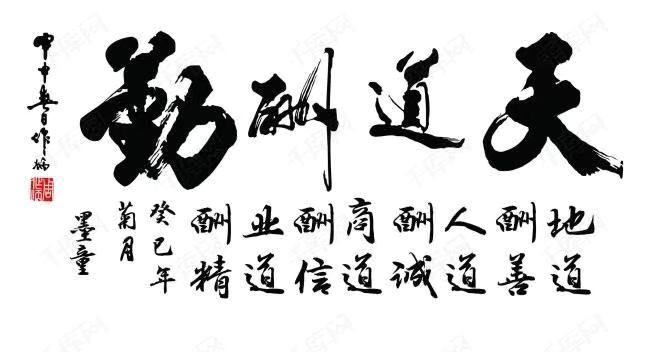 天道酬勤
地道
酬善
人道
酬诚
商道
酬信
业道
酬精
癸巳年
菊月
墨童
千库网